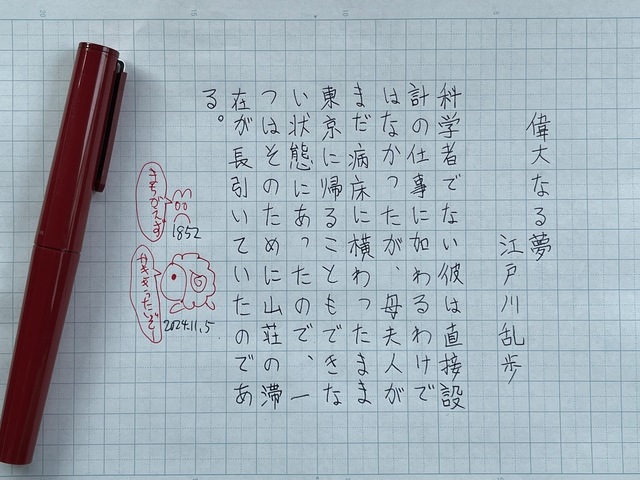 偉大なる夢
江戸川乱歩
科学者でない彼は直接設
計の仕事に加わるわけで
はなかったが、母夫人が
まだ病床に横わったまま
東京に帰ることもできな
い状態にあったので、一
つはそのために山荘の滞
在が長引いていたのであ
る。
まちがえず
1852
かききったぞー
2024.11.5